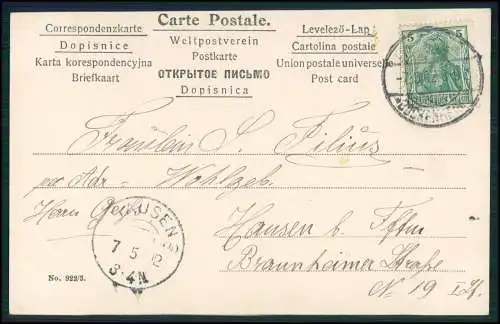 Carte Postale.
Correspondenzkarte
Dopisnice
Karta korespondencyjna
Briefkaart
Weltpostverein
Postkarte
ОТКРЫТОЕ ПИСЬМО
Dopisnica
Levelező-Lap
Cartolina postale
Union postale universelle
Post card
5 5
Fräulein S. Filius
per Adr. Wohlgeb.
Herrn
Hausen b. Fftm
Braunheimer Straße
No 19 I.
HAUSEN
7 5 2
3-4N
No. 922/3.